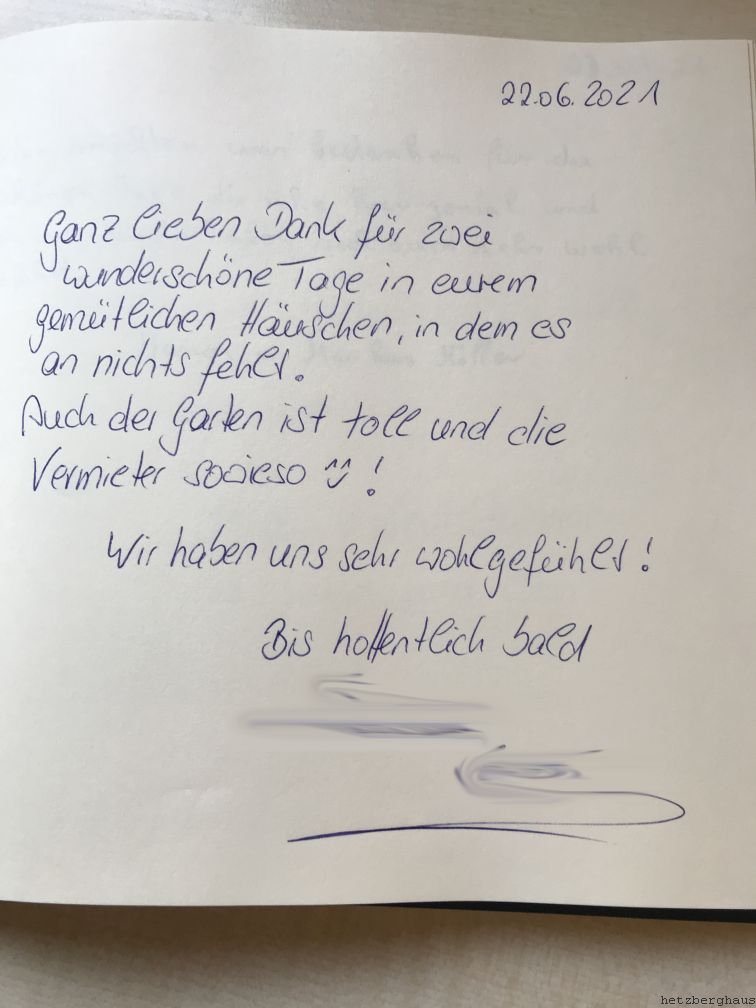 22.06.2021
Ganz lieben Dank für zwei
wunderschöne Tage in eurem
gemütlichen Häuschen, in dem es
an nichts fehlt.
Auch der Garten ist toll und die
Vermieter sowieso ^^ !
Wir haben uns sehr wohlgefühlt!
Bis hoffentlich bald
hetzberghaus